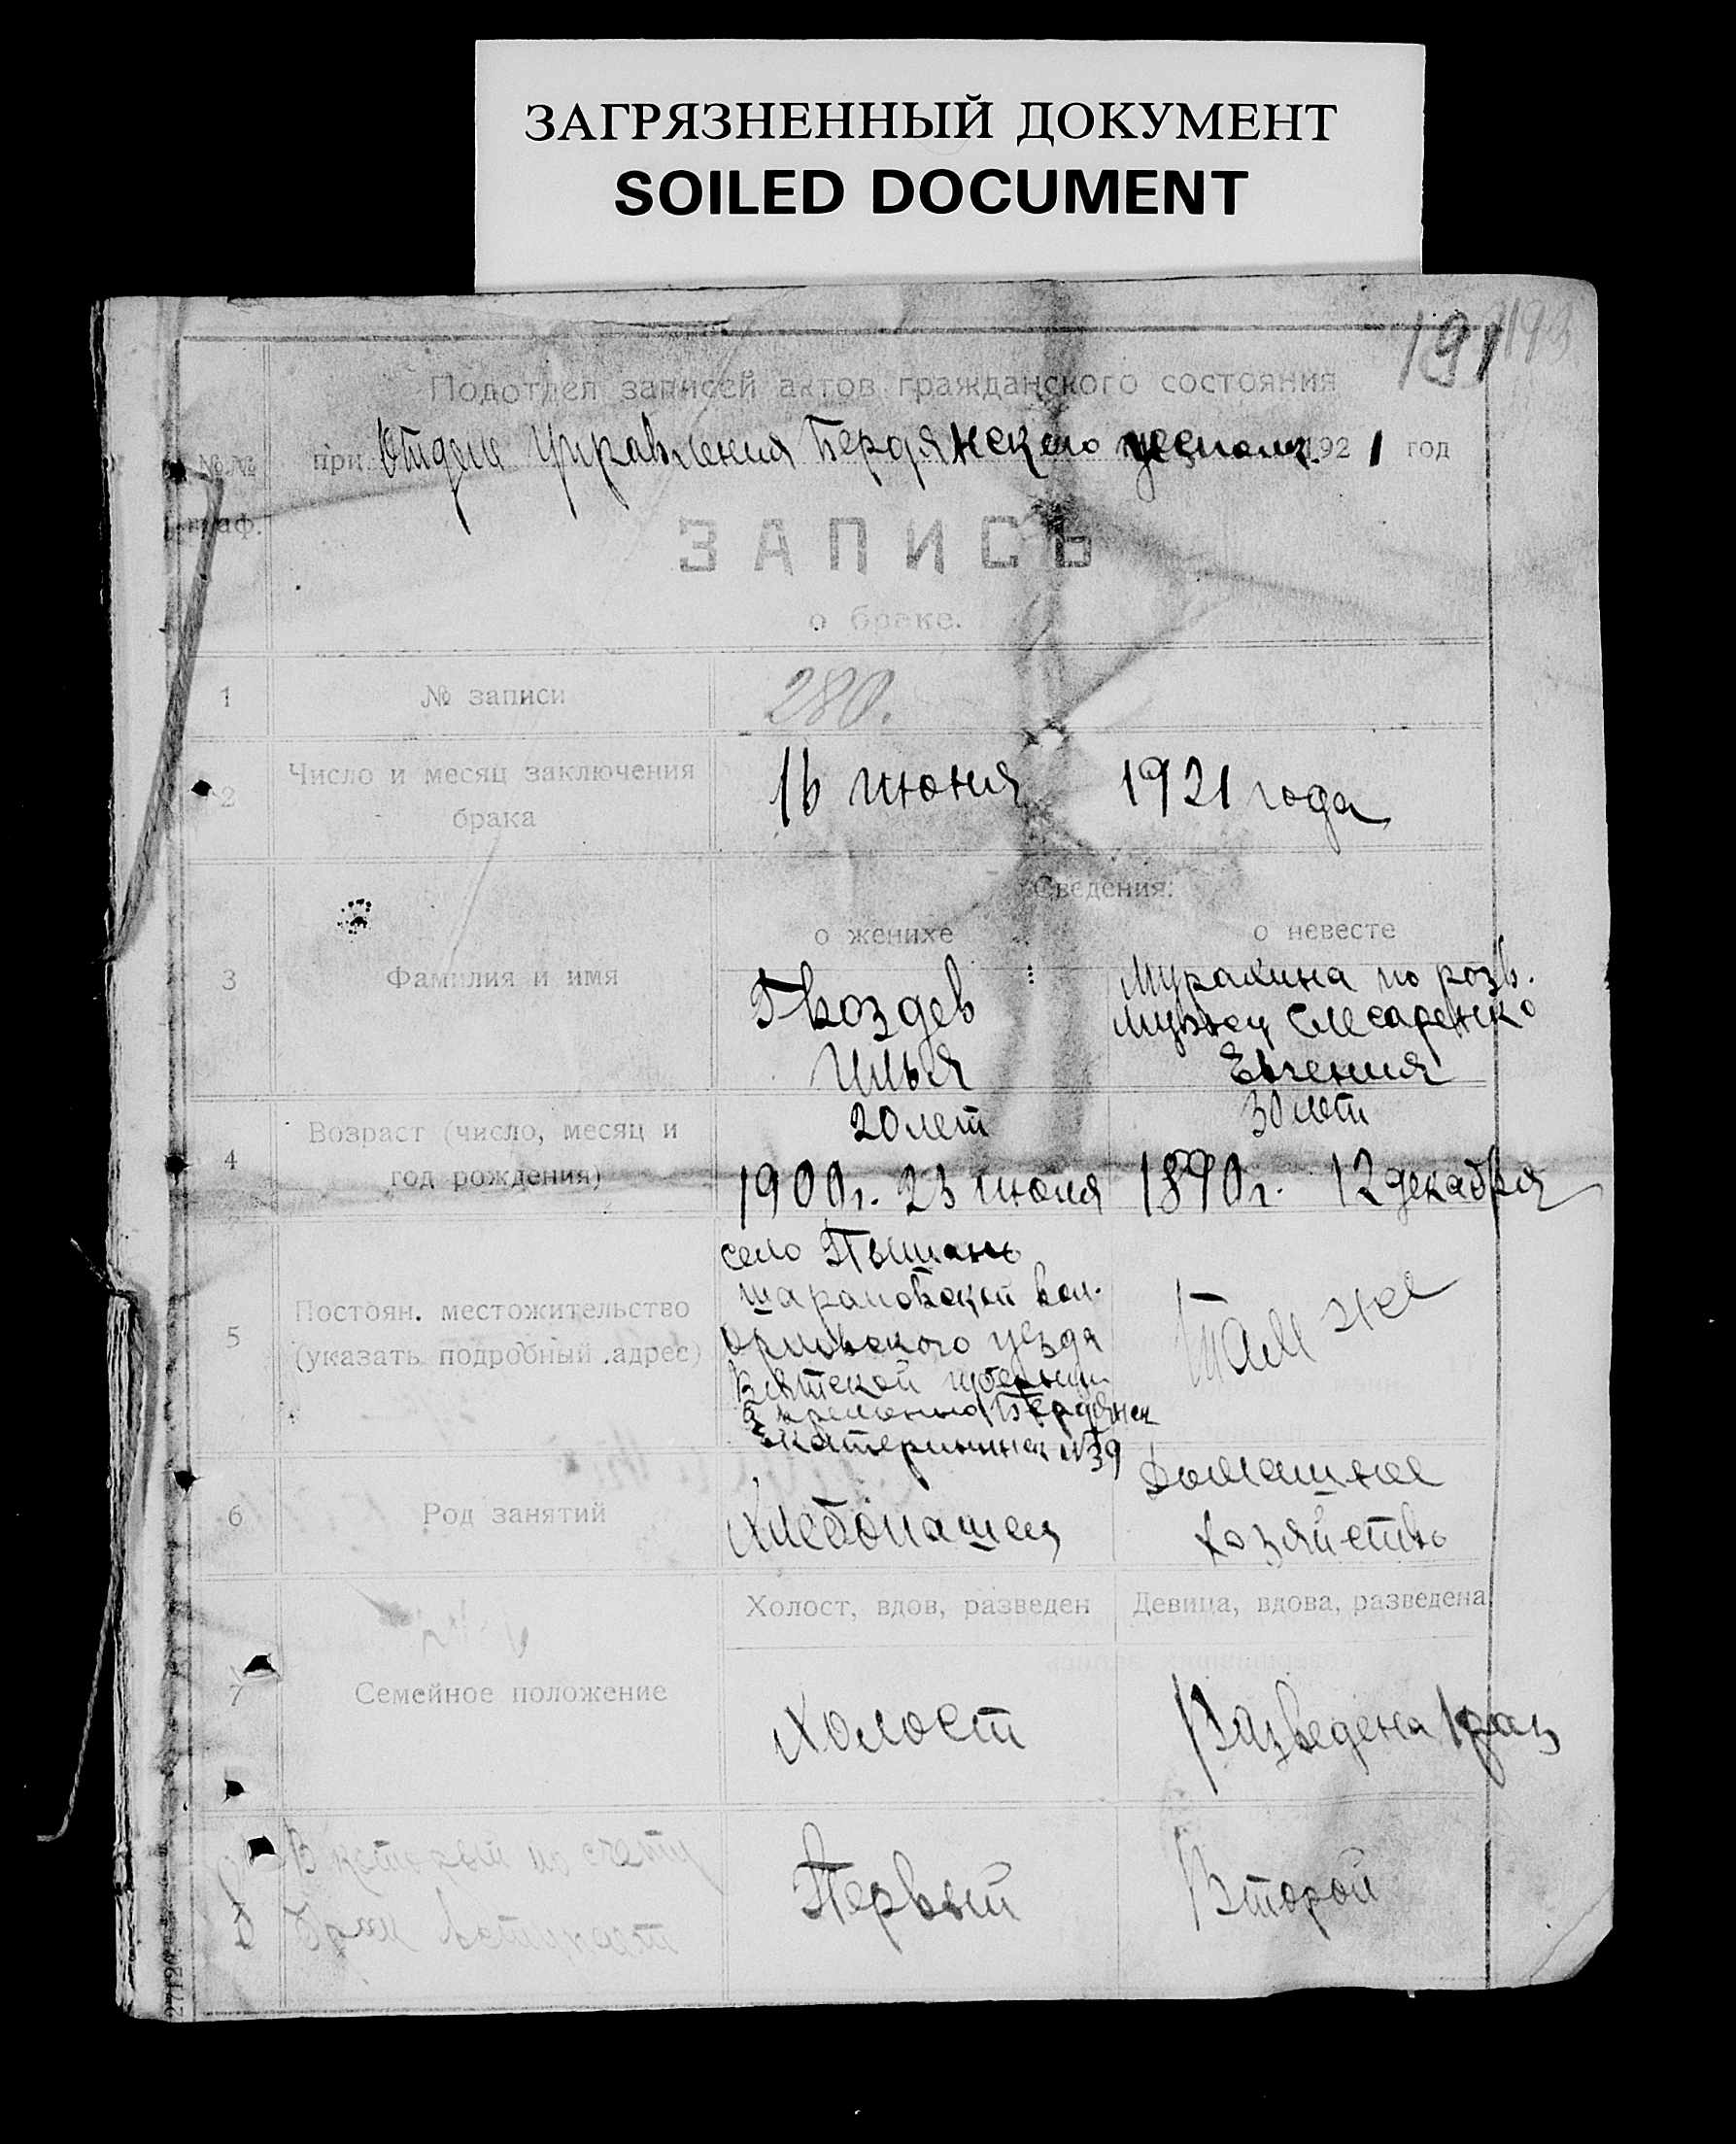 ЗАГРЯЗНЕННЫЙ ДОКУМЕНТ
SOILED DOCUMENT
191 193
Подотдел записей актов гражданского состояния
№№ при Отделе Управления Бердянского уисполк. 1921 год
граф.
ЗАПИСЬ
о браке.
1 № записи 280.
2 Число и месяц заключения 16 июня 1921 года
брака
Сведения:
о женихе о невесте
3 Фамилия и имя Гвоздев Мурахина по розв.
мужу Слесаренко
Илья Евгения
20 лет 30 лет
4 Возраст (число, месяц и
год рождения) 1900г. 23 июля 1890г. 12 декабря
село
Шараповской вол.
5 Постоян. местожительство Орловского уезда Там же
(указать подробный адрес) Вятской губернии
временно Бердянск
Екатерининск №39
Домашнее
6 Род занятий Хлебопашец хозяйство
Холост, вдов, разведен Девица, вдова, разведена
7 Семейное положение Холост Разведена 1 раз
8 В который по счету Первый Второй
брак вступает
27120